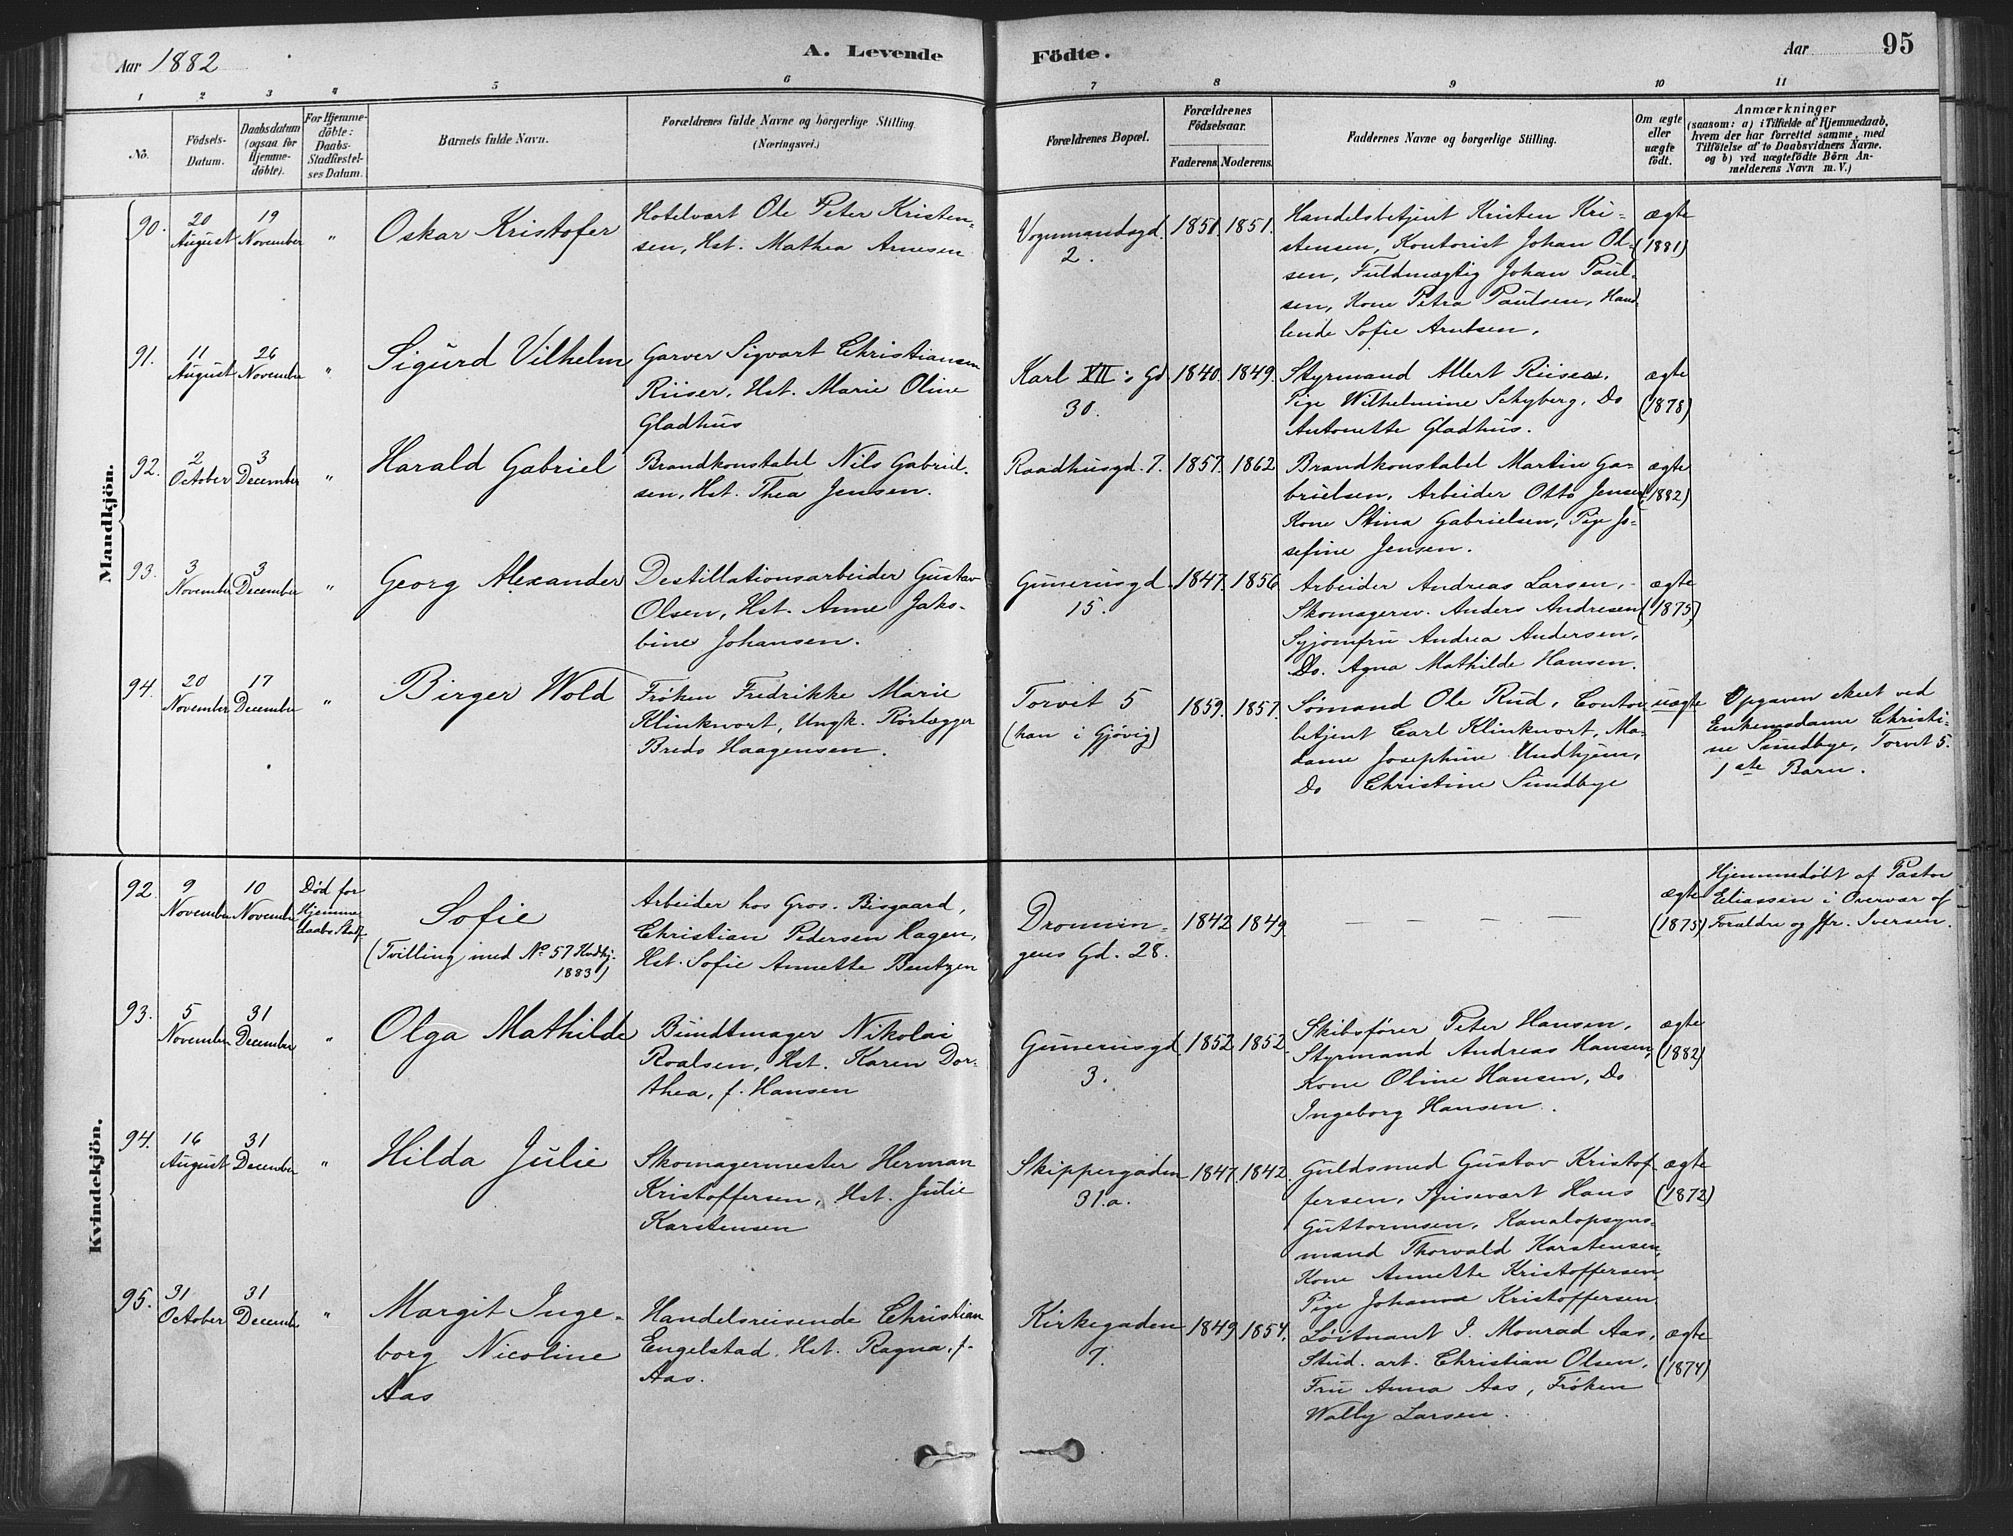 Aar 1882
A. Levende
Födte.
Aar 95
1 2 3 4 5 6 7 8 9 10 11
No.
Födsels-
Datum.
Daabsdatum
(ogsaa for
Hjemme-
döbte).
For Hjemme-
döbte:
Daabs-
Stadfæstel-
ses Datum.
Barnets fulde Navn.
Forældrenes fulde Navne og borgerlige Stilling
(Næringsvei.)
Forældrenes Bopæl.
Forældrenes
Födselsaar.
Faderens. Moderens.
Faddernes Navne og borgerlige Stilling.
Om ægte
eller
uægte
födt.
Anmærkninger
(saasom: a) i Tilfælde af Hjemmedaab,
hvem der har forrettet samme, med
Tilföielse af to Daabsvidners Navne.
og b) ved uægtefödte Börn An-
melderens Navn m. V.)
Mandkjön.
90.
20
August
19
November
"
Oskar Kristofer
Hotelvært Ole Peter Kristen-
sen, Hst. Mathea Arnesen
Vognmandsgd.
2.
1851. 1851.
Handelsbetjent Kristen Kri-
stensen, Kontorist Johan Ol-
sen, Fuldmægtig Johan Paul-
sen, Kone Petra Paulsen, Hand
lende Sofie Arntsen.
ægte
(1881)
91.
11
August
26
November
"
Sigurd Vilhelm
Garver Sigvart Christiansen
Riiser, Hst. Marie Oline
Gladhus
Karl XII:s Gd
30.
1840. 1849.
Styrmand Allert Riiser,
Pige Wilhelmine Schyberg, Do
Antonette Gladhus.
ægte
(1878)
92.
2
October
3
December
"
Harald Gabriel
Brandkonstabel Nils Gabriel-
sen, Hst. Thea Jensen.
Raadhusgd. 7.
1857. 1862
Brandkonstabel Martin Ga-
brielsen, Arbeider Otto Jensen
Kone Stina Gabrielsen, Pige Jo-
sefine Jensen.
ægte
(1882)
93.
3
November
3
December
"
Georg Alexander
Destillationsarbeider Gustav
Olsen, Hst. Anne Jako-
bine Johansen.
Gunerusgd.
15.
1847. 1856
Arbeider Andreas Larsen,
Skomagersv. Anders Andresen
Syjomfru Andrea Andersen,
Do. Agna Mathilde Hansen.
ægte
(1875)
94.
20
November
17
December
"
Birger Wold
Frøken Fredrikke Marie
Klinkwort, Ungk. Rørlægger
Bredo Haagensen.
Torvet 5
(han i Gjøvig)
1859. 1857.
Sömand Ole Rud, Contor-
betjent Carl Klinkwort, Ma-
dame Josephine Undhjem,
Do Christine Sundbye
uægte
Opgaven skeet ved
Enkemadame Christi-
ne Sundbye, Torvet 5.
1ste Barn.
Kvindekjön.
92.
9
November
10
November
Død før
Hjemme-
daabs Stadf.
Sofie
(Tvilling med No 57 Kvdkj.
1883)
Arbeider hos Gros. Bisgaard,
Christian Pedersen Hagen,
Hst. Sofie Annette Bentzen
Dronnin-
gens Gd. 28.
1842 1849.
— — — —
ægte
(1875)
Hjemmedøbt af Pastor
Eliassen i Overvær af
Forældre og Jfr. Iversen.
93.
5
November
31
December
"
Olga Mathilde
Bundtmager Nikolai
Roalsen, Hst. Karen Dor-
thea, f. Hansen
Gunerusgd.
3.
1852 1852
Skibsfører Peter Hansen,
Styrmand Andreas Hansen,
Kone Oline Hansen, Do
Ingeborg Hansen.
ægte
(1882)
94.
16
August
31
December
"
Hilda Julie
Skomagermester Herman
Kristoffersen, Hst. Julie
Karstensen
Skippergaden
31.a.
1847. 1842.
Guldsmed Gustav Kristof-
fersen, Spisevært Hans
Guttormsen, Kanalopsyns-
mand Thorvald Karstensen,
Kone Annette Kristoffersen,
Pige Johanna Kristoffersen.
ægte
(1872)
95.
31
October
31
December
"
Margit Inge-
borg Nicoline
Aas
Handelsreisende Christian
Engelstad, Hst. Ragna, f.
Aas.
Kirkegaden
7.
1849 1854.
Løitnant I. Monrad Aas,
Stud. art. Christian Olsen,
Fru Anna Aas, Frøken
Wally Larsen.
ægte
(1874)